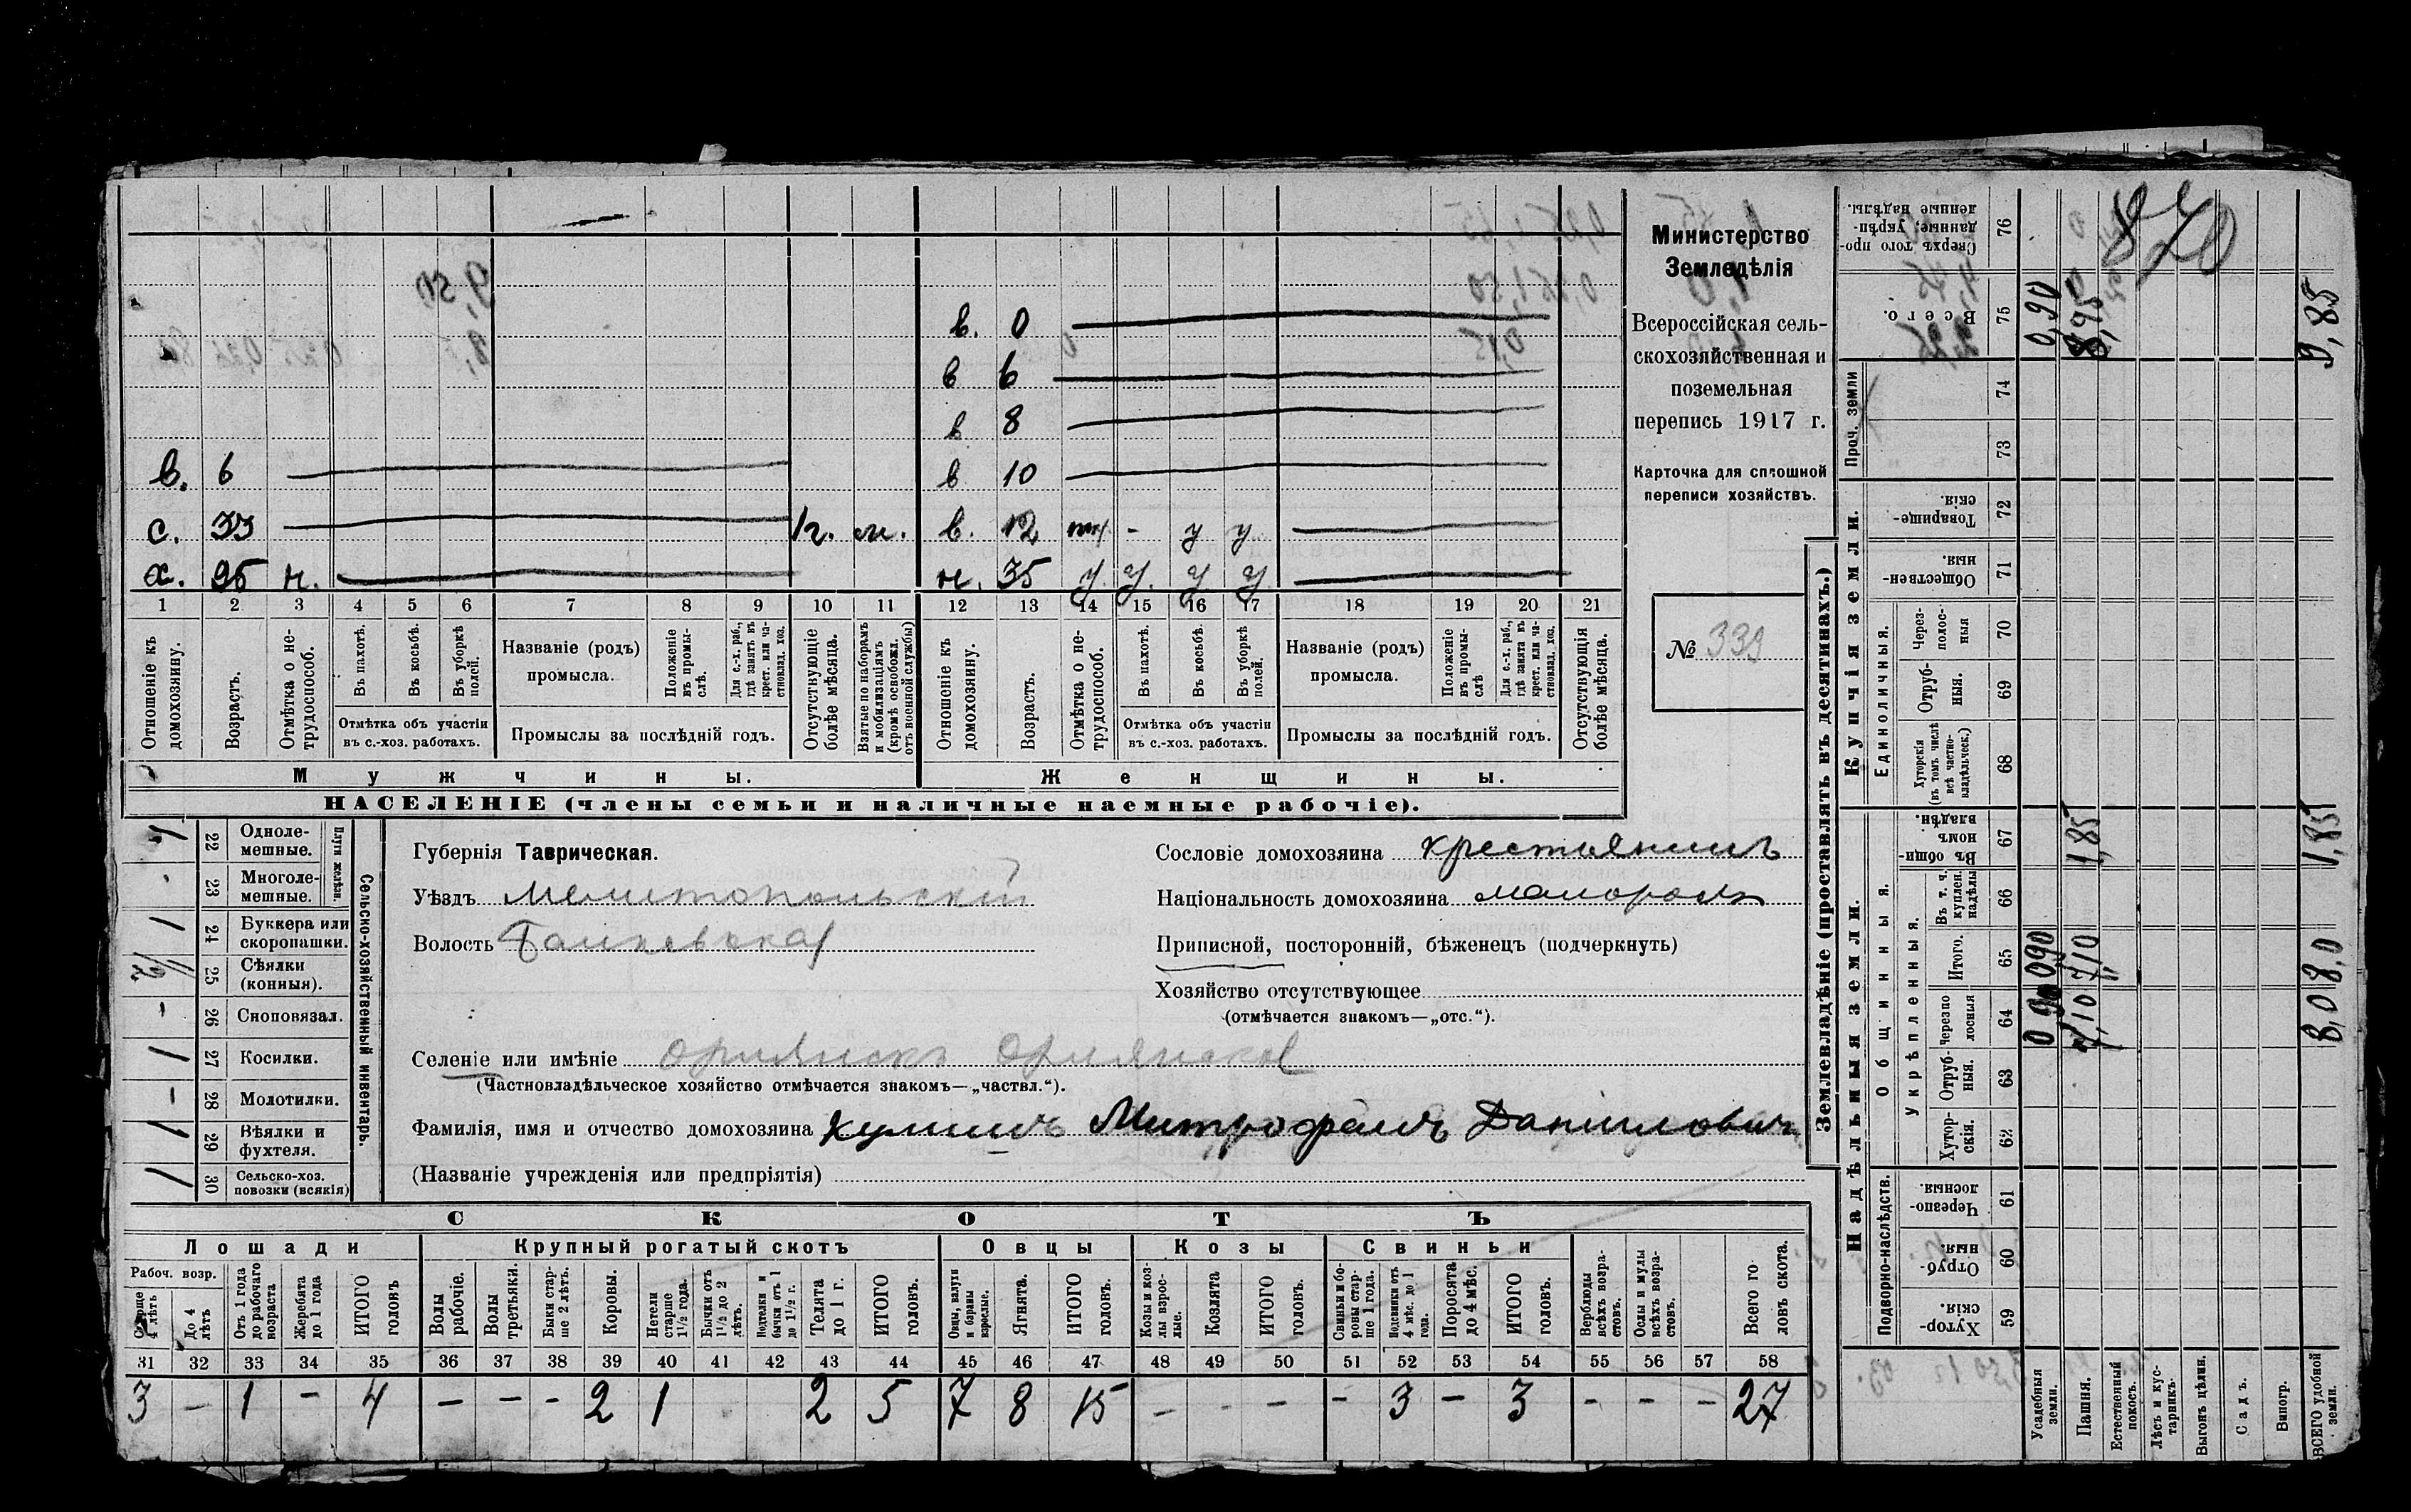 в. 0
в 6
в 8
в 10
в. 6
с. 33 1г. м. в. 12 - у у
х. 95 н. ж. 35 у у у у
1 2 3 4 5 6 7 8 9 10 11 12 13 14 15 16 17 18 19 20 21
Отношеніе къ домохозяину.
Возрастъ.
Отмѣтка о не-трудоспособ.
Въ пахотѣ.
Въ косьбѣ.
Въ уборкѣ полей.
Отмѣтка объ участіи
въ с.-хоз. работахъ.
Названіе (родъ)
промысла.
Положеніе въ промы-слѣ.
Для с.-х. раб., гдѣ занятъ въ крест. или ча-стновлад. хоз.
Промыслы за послѣдній годъ.
Отсутствующіе болѣе мѣсяца.
Взятые по наборамъ и мобилизаціямъ (кромѣ освобожд. отъ военной службы)
Отношеніе къ домохозяину.
Возрастъ.
Отмѣтка о не-трудоспособ.
Въ пахотѣ.
Въ косьбѣ.
Въ уборкѣ полей.
Отмѣтка объ участіи
въ с.-хоз. работахъ.
Названіе (родъ)
промысла.
Положеніе въ промы-слѣ
Для с.-х. раб., гдѣ занята въ крест. или ча-стновлад. хоз.
Промыслы за послѣдній годъ.
Отсутствующія болѣе мѣсяца.
Мужчины. Женщины.
НАСЕЛЕНІЕ (члены семьи и наличные наемные рабочіе).
Министерство
Земледѣлія
Всероссійская сель-
скохозяйственная и
поземельная
перепись 1917 г.
Карточка для сплошной
переписи хозяйствъ.
№ 339
Сельско-хозяйственный инвентарь.
Плуги желѣзн.
1 22 Одноле-мешные.
23 Многоле-мешные.
1 24 Буккера или скоропашки.
25 Сѣялки (конныя).
- 26 Сноповязал.
1 27 Косилки.
- 28 Молотилки.
1 29 Вѣялки и фухтеля.
1 30 Сельско-хоз. повозки (всякія)
Губернія Таврическая.
Уѣздъ Мелитопольскій
Волость
Сословіе домохозяина крестьянинъ
Національность домохозяина малороссъ
Приписной, посторонній, бѣженецъ (подчеркнуть)
Хозяйство отсутствующее
(отмѣчается знакомъ—„отс.“).
Селеніе или имѣніе Орлянскъ
(Частновладѣльческое хозяйство отмѣчается знакомъ—„частвл.“).
Фамилія, имя и отчество домохозяина Кулишъ Митрофанъ Даниловичъ
(Названіе учрежденія или предпріятія)
СКОТЪ
Лошади Крупный рогатый скотъ Овцы Козы Свиньи
Рабоч. возр.
Старше 4 лѣтъ
До 4 лѣтъ
Отъ 1 года до рабочаго возраста
Жеребята до 1 года
ИТОГО головъ
Волы рабочіе.
Волы третьяки.
Быки стар-ше 2 лѣтъ.
Коровы.
Нетели старше 1½ года.
Бычки отъ 1½ до 2 лѣтъ.
Подтелки и бычки отъ 1 до 1½ г.
Телята до 1 г.
ИТОГО головъ.
Овцы, валухи и бараны взрослые.
Ягнята.
ИТОГО головъ.
Козы и коз-лы взрос-лые.
Козлята
ИТОГО головъ.
Свиньи и бо-ровы стар-ше 1 года.
Подсвинки отъ 4 мѣс. до 1 года.
Поросята до 4 мѣс.
ИТОГО головъ.
Верблюды всѣхъ возра-стовъ.
Ослы и мулы всѣхъ возра-стовъ.
Всего го-ловъ скота.
31 32 33 34 35 36 37 38 39 40 41 42 43 44 45 46 47 48 49 50 51 52 53 54 55 56 57 58
3 - 1 - 4 - - - 2 1 2 5 7 8 15 - - - - 3 - 3 - - - 27
Землевладѣніе (проставлять въ десятинахъ.)
Надѣльныя земли.
Купчія земли.
Проч. земли
Подворно-наслѣдств.
Общинныя.
Укрѣпленныя.
Единоличныя.
820
76 Сверхъ того про-данные, укрѣп-ленные надѣлы.
75 Всего. 0,90 8,95 9,85
74
73
72 Товарище-скія.
71 Обществен-ныя
70 Через-полос-ныя
69 Отруб-ныя.
68 Хуторскія (въ томъ числѣ всѣ частно-владѣльческ.)
67 Въ общи-номъ владѣн. 1,85 1,85
66 Въ т. ч. куплен. надѣлы
65 Итого. 0,90 7,10 8,0
64 Черезпо лосныя 7,10 8,0
63 Отруб-ныя.
62 Хутор-скія.
61 Черезпо-лосныя.
60 Отруб-ныя.
59 Хутор-скія.
Усадебныя земли.
Пашня.
Естественный покосъ.
Лѣсъ и кус-тарникъ.
Выгонъ цѣлин.
Садъ.
Виногр.
ВСЕГО удобной земли.